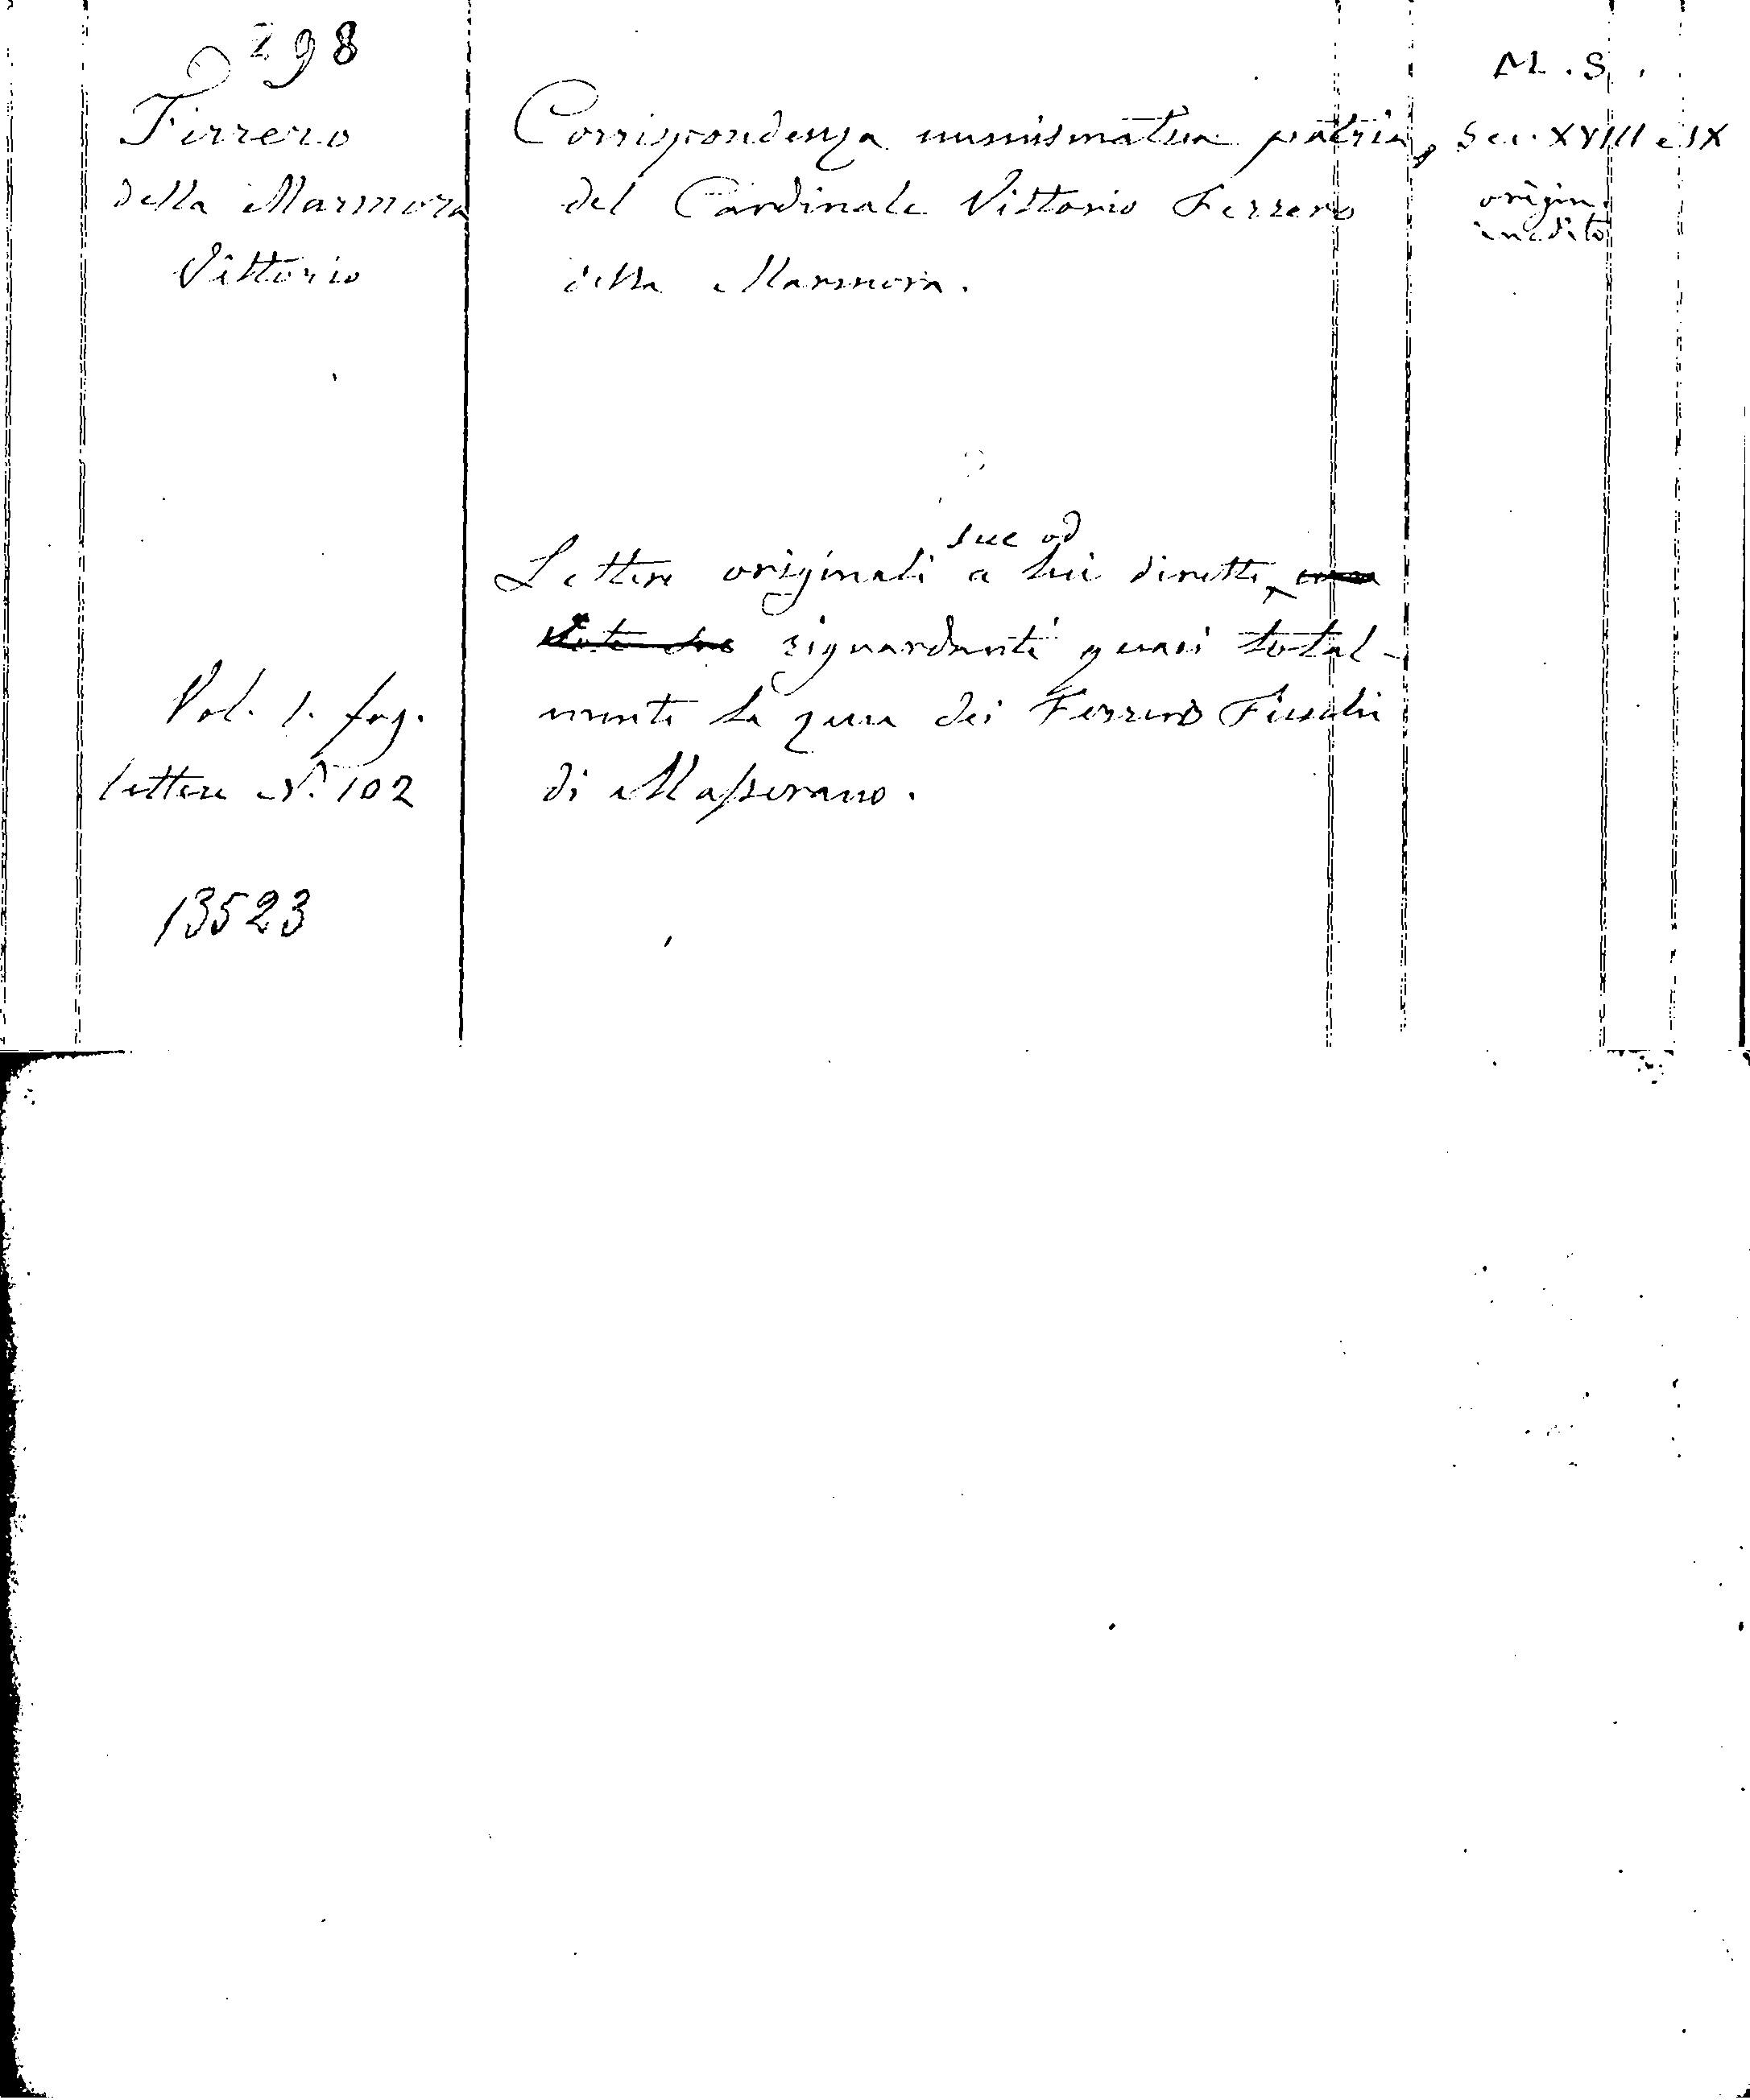 298
Ferrero
della Marmora
Vittorio
Vol. 1. fog.
lettere N.° 102
13523
Corrispondenza numismatica patria,
del Cardinale Vittorio Ferrero
della Marmora.
sue od
Lettere originali a lui dirette
riguardanti quasi total-
mente la zecca dei Ferrero Fieschi
di Masserano.
M. S.
Sec. XVIII e IX
origin.
inedito